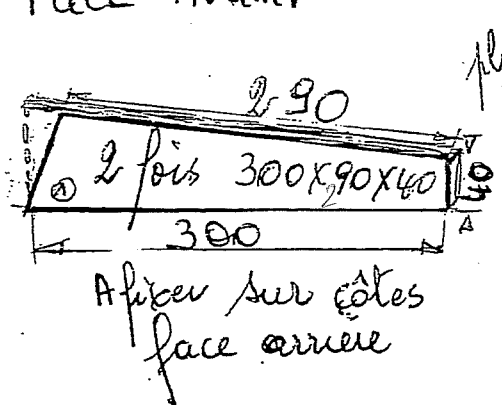 Face Avant
pl
290
① 2 fois 300x290x40
40
300
Afixer sur côtes
face arrière